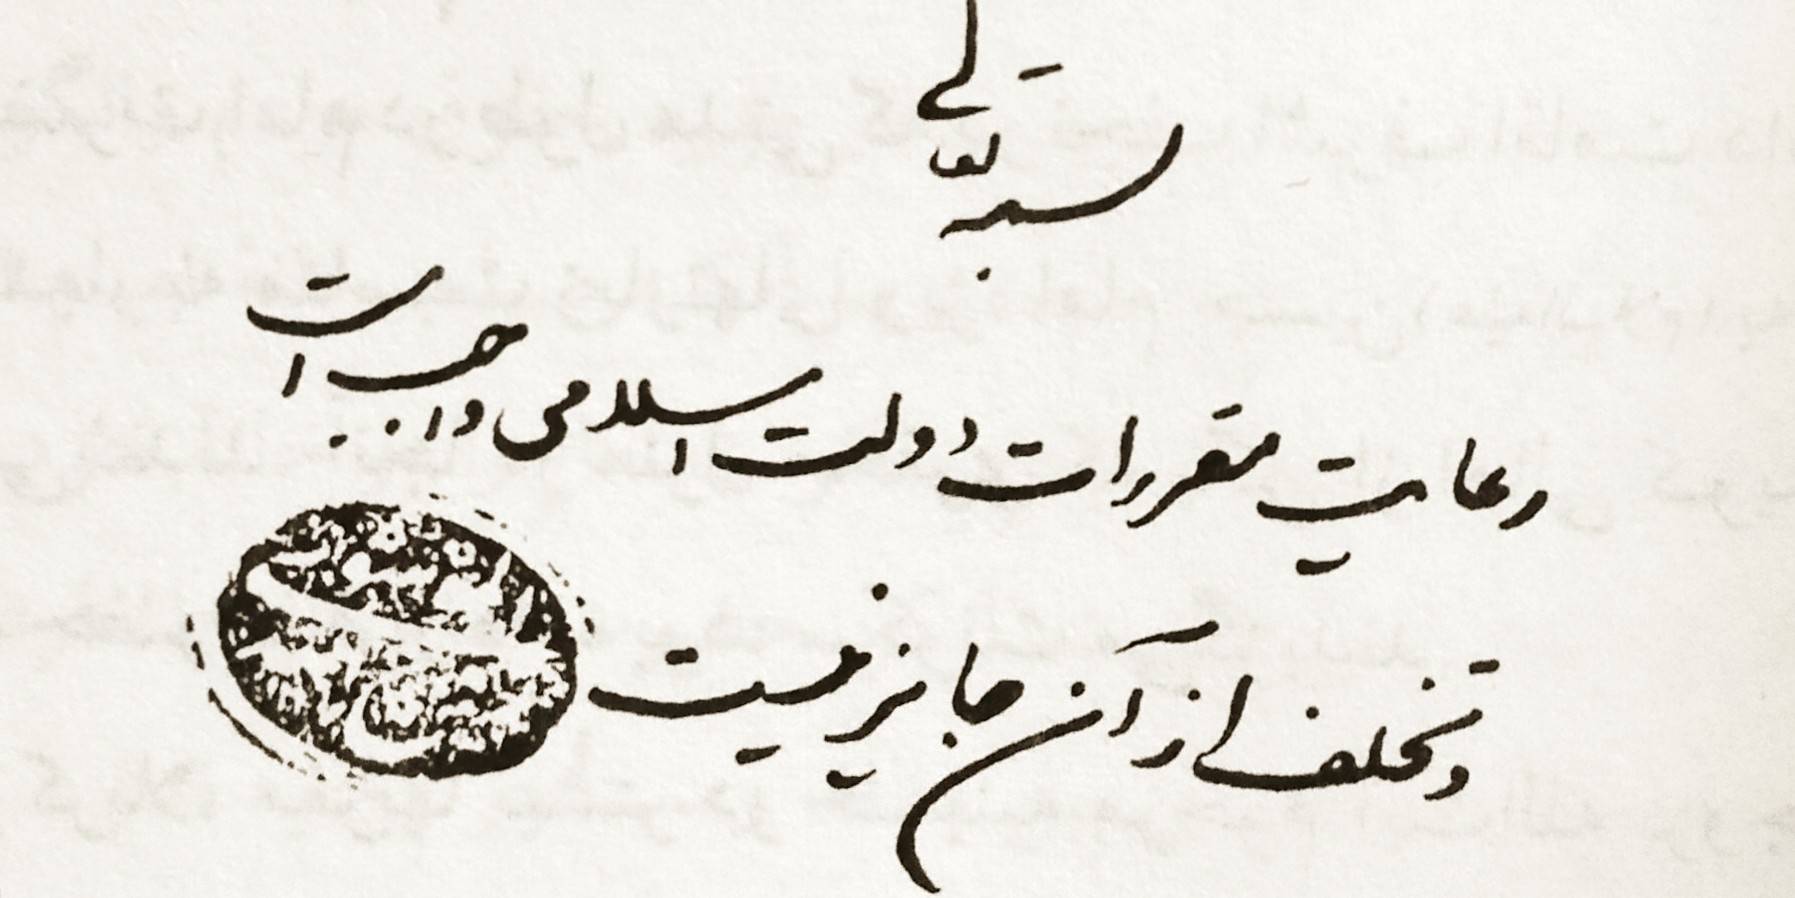 بسمه تعالی
رعایت مقررات دولت اسلامی واجب است
و تخلف از آن جایز نیست